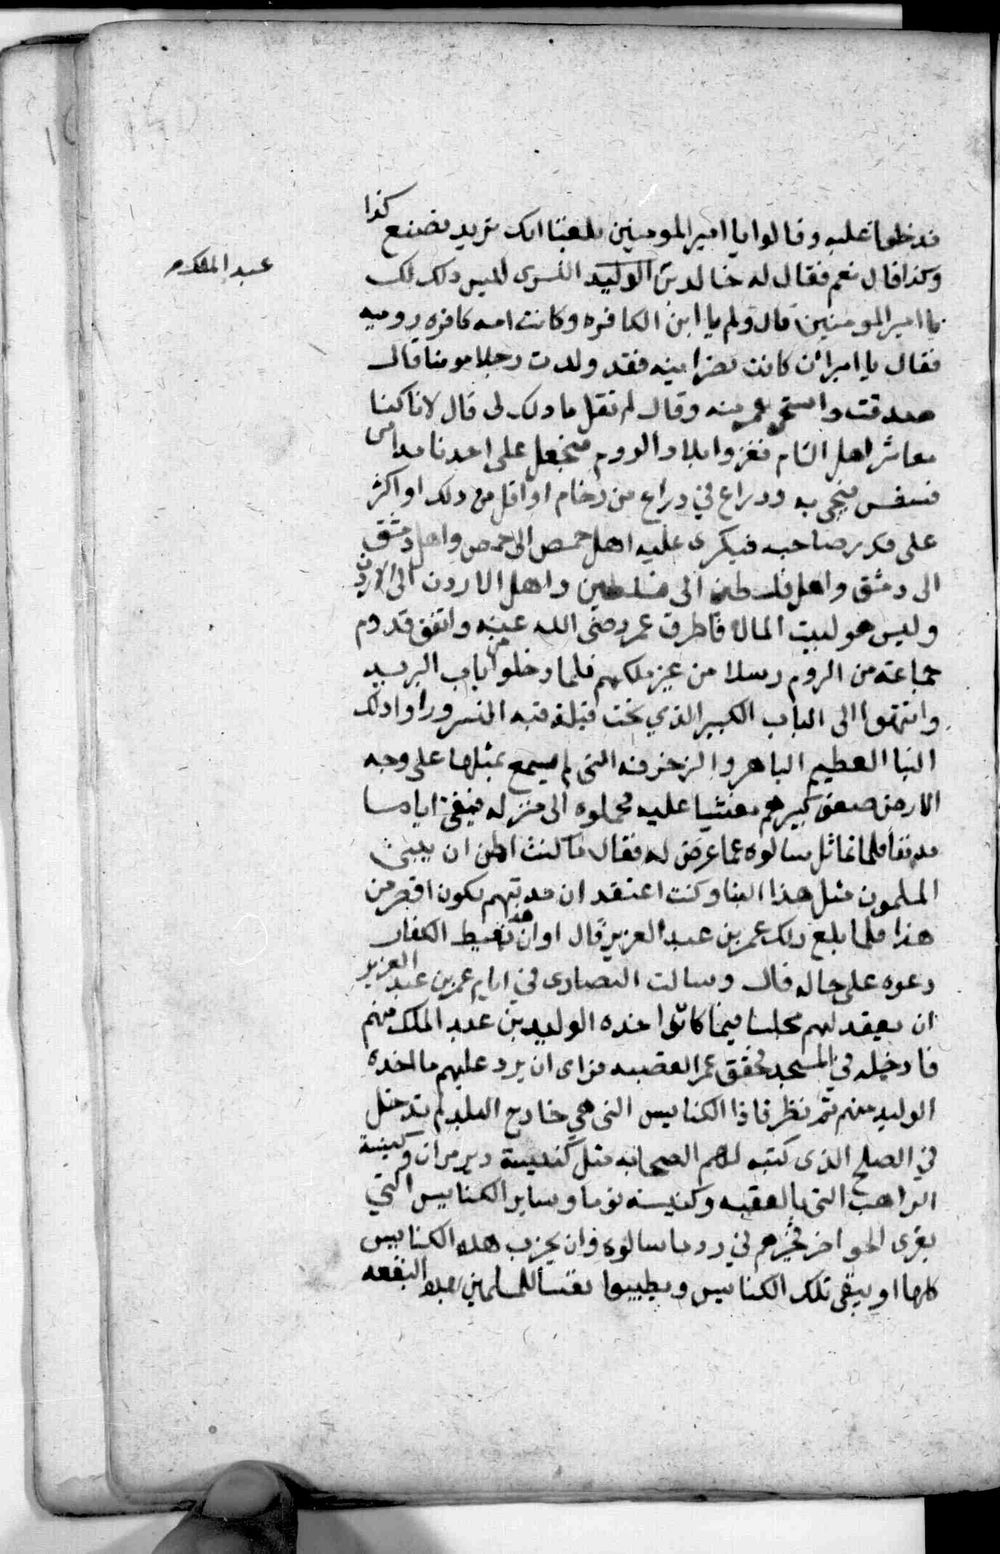 فدخلوا عليه وقالوا يا امير المومنين بلغنا انك تريد تصنع كذا
وكذا قال نعم فقال له خالد بن الوليد القسرى ليس ذلك لك
عبد الملك م
يا امير المومنين قال ولم يا ابن الكافره وكانت امه كافره روميه
فقال يا امير ان كانت نصرانيه فقد ولدت رجلا مومنا قال
صدقت واستحى عمر منه وقال لم تقل ما ذلك لى قال لانا كنا
معاشر اهل الشام نغزوا بلاد الروم فيجعل على احدنا مدا من
فسفس فيجى به وذراع في ذراع من رخام او اقل من ذلك او اكثر
على قدر صاحبه فيكرى عليه اهل حمص الى حمص واهل دمشق
الى دمشق واهل فلسطين الى فلسطين واهل الاردن الى الاردن
وليس هو لبيت المال فاطرق عمر رضى الله عنه واتفق قدوم
جماعة من الروم رسلا من عند ملكهم فلما دخلوا من باب البريد
وانتهوا الى الباب الكبير الذي تحت قبلة قبه النسر وراوا ذلك
البنا العظيم الباهر والزخرفه التى لم يسمع بمثلها على وجه
الارض صعق كبيرهم مغشيا عليه فحملوه الى منزله فبقى اياما
مدنفا فلما تماثل سالوه عما عرض له فقال ما كنت اظن ان يبنى
المسلمون مثل هذا البنا وكنت اعتقد ان مدتهم تكون اقصر من
هذا فلما بلغ ذلك عمر بن عبد العزيز قال اوان هذا لغيظ الكفار
دعوه على حاله قال وسالت النصارى في ايام عمر بن عبد العزيز
ان يعقد لهم مجلسا فيما كان اخذه الوليد بن عبد الملك منهم
فادخله في المسجد فحقق عمر القضيه فراى ان يرد عليهم ما اخذه
الوليد منهم ثم نظر فاذا الكنايس التى هي خارج البلد لم تدخل
في الصلح الذى كتبه لهم الصحابه مثل كنيسة دير مران وكنيسة
الراهب التى بالعقبه وكنيسة توما وساير الكنايس التي
بقرى الحواجز فخيرهم في رد ما سالوه وان يخرب هذه الكنايس
كلها او يبقى تلك الكنايس ويطيبوا نفسا للمسلمين بهذه البقعه